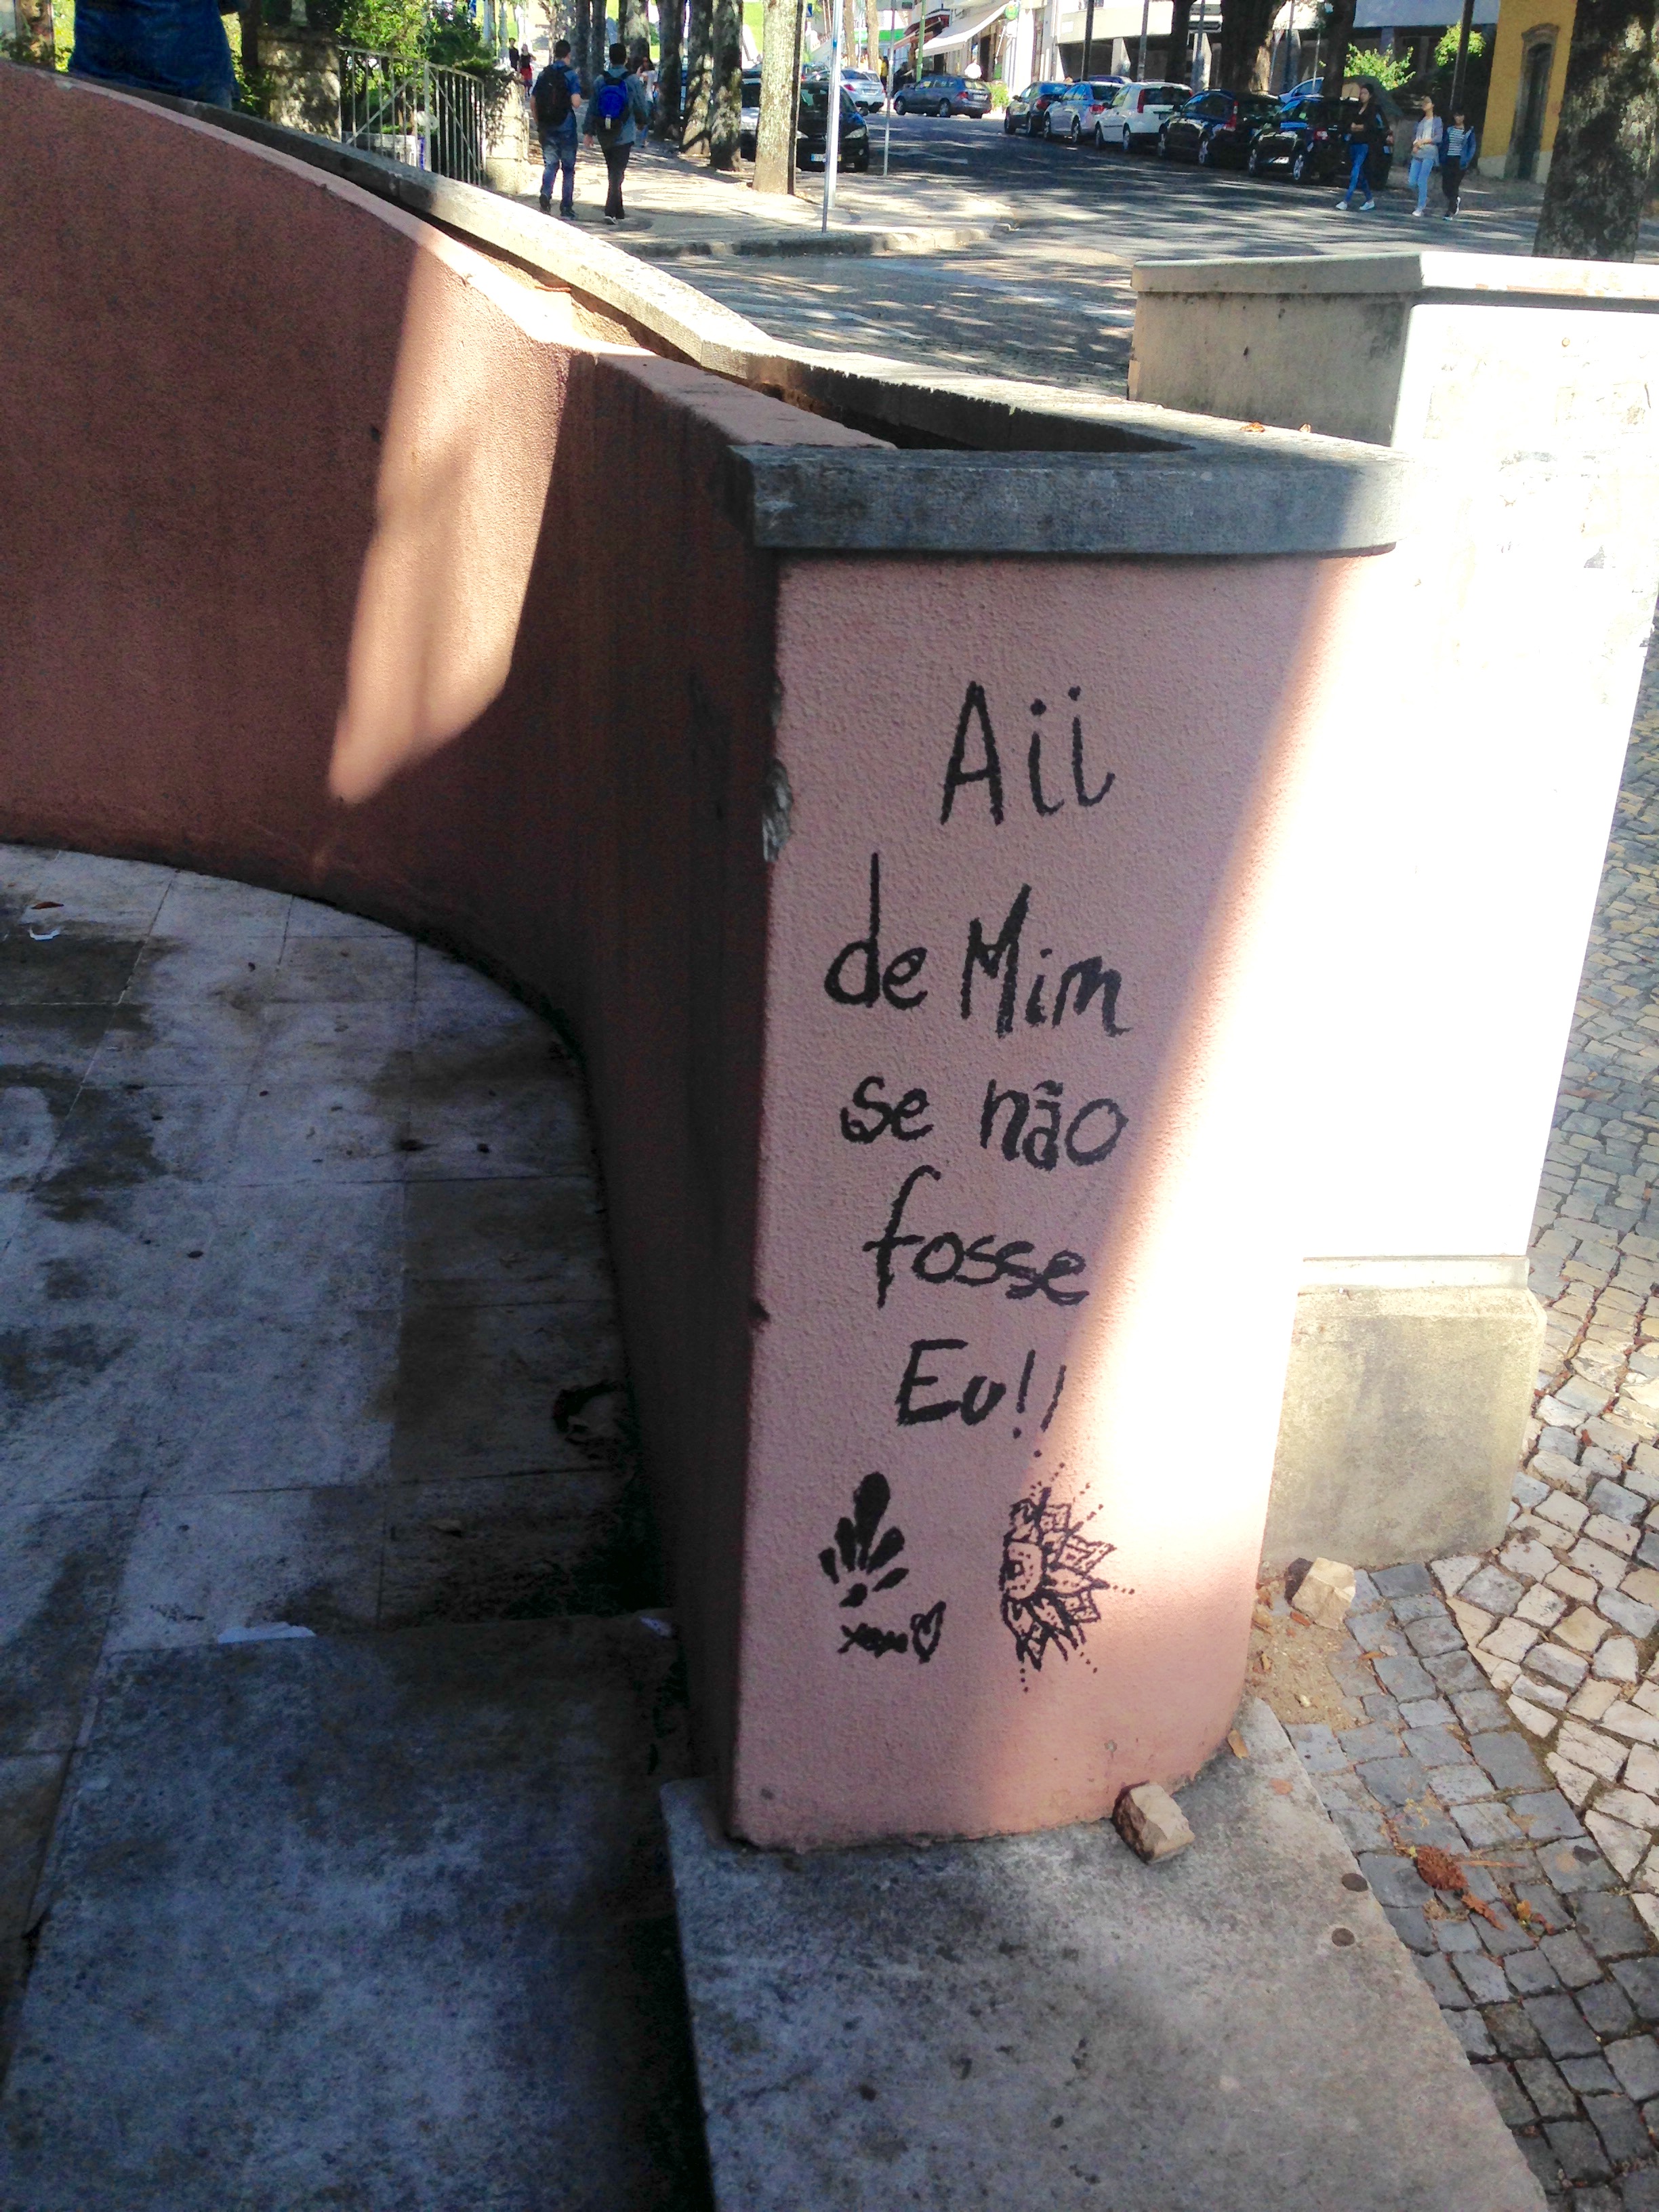 Aii
de Mim
se não
fosse
Eu!!